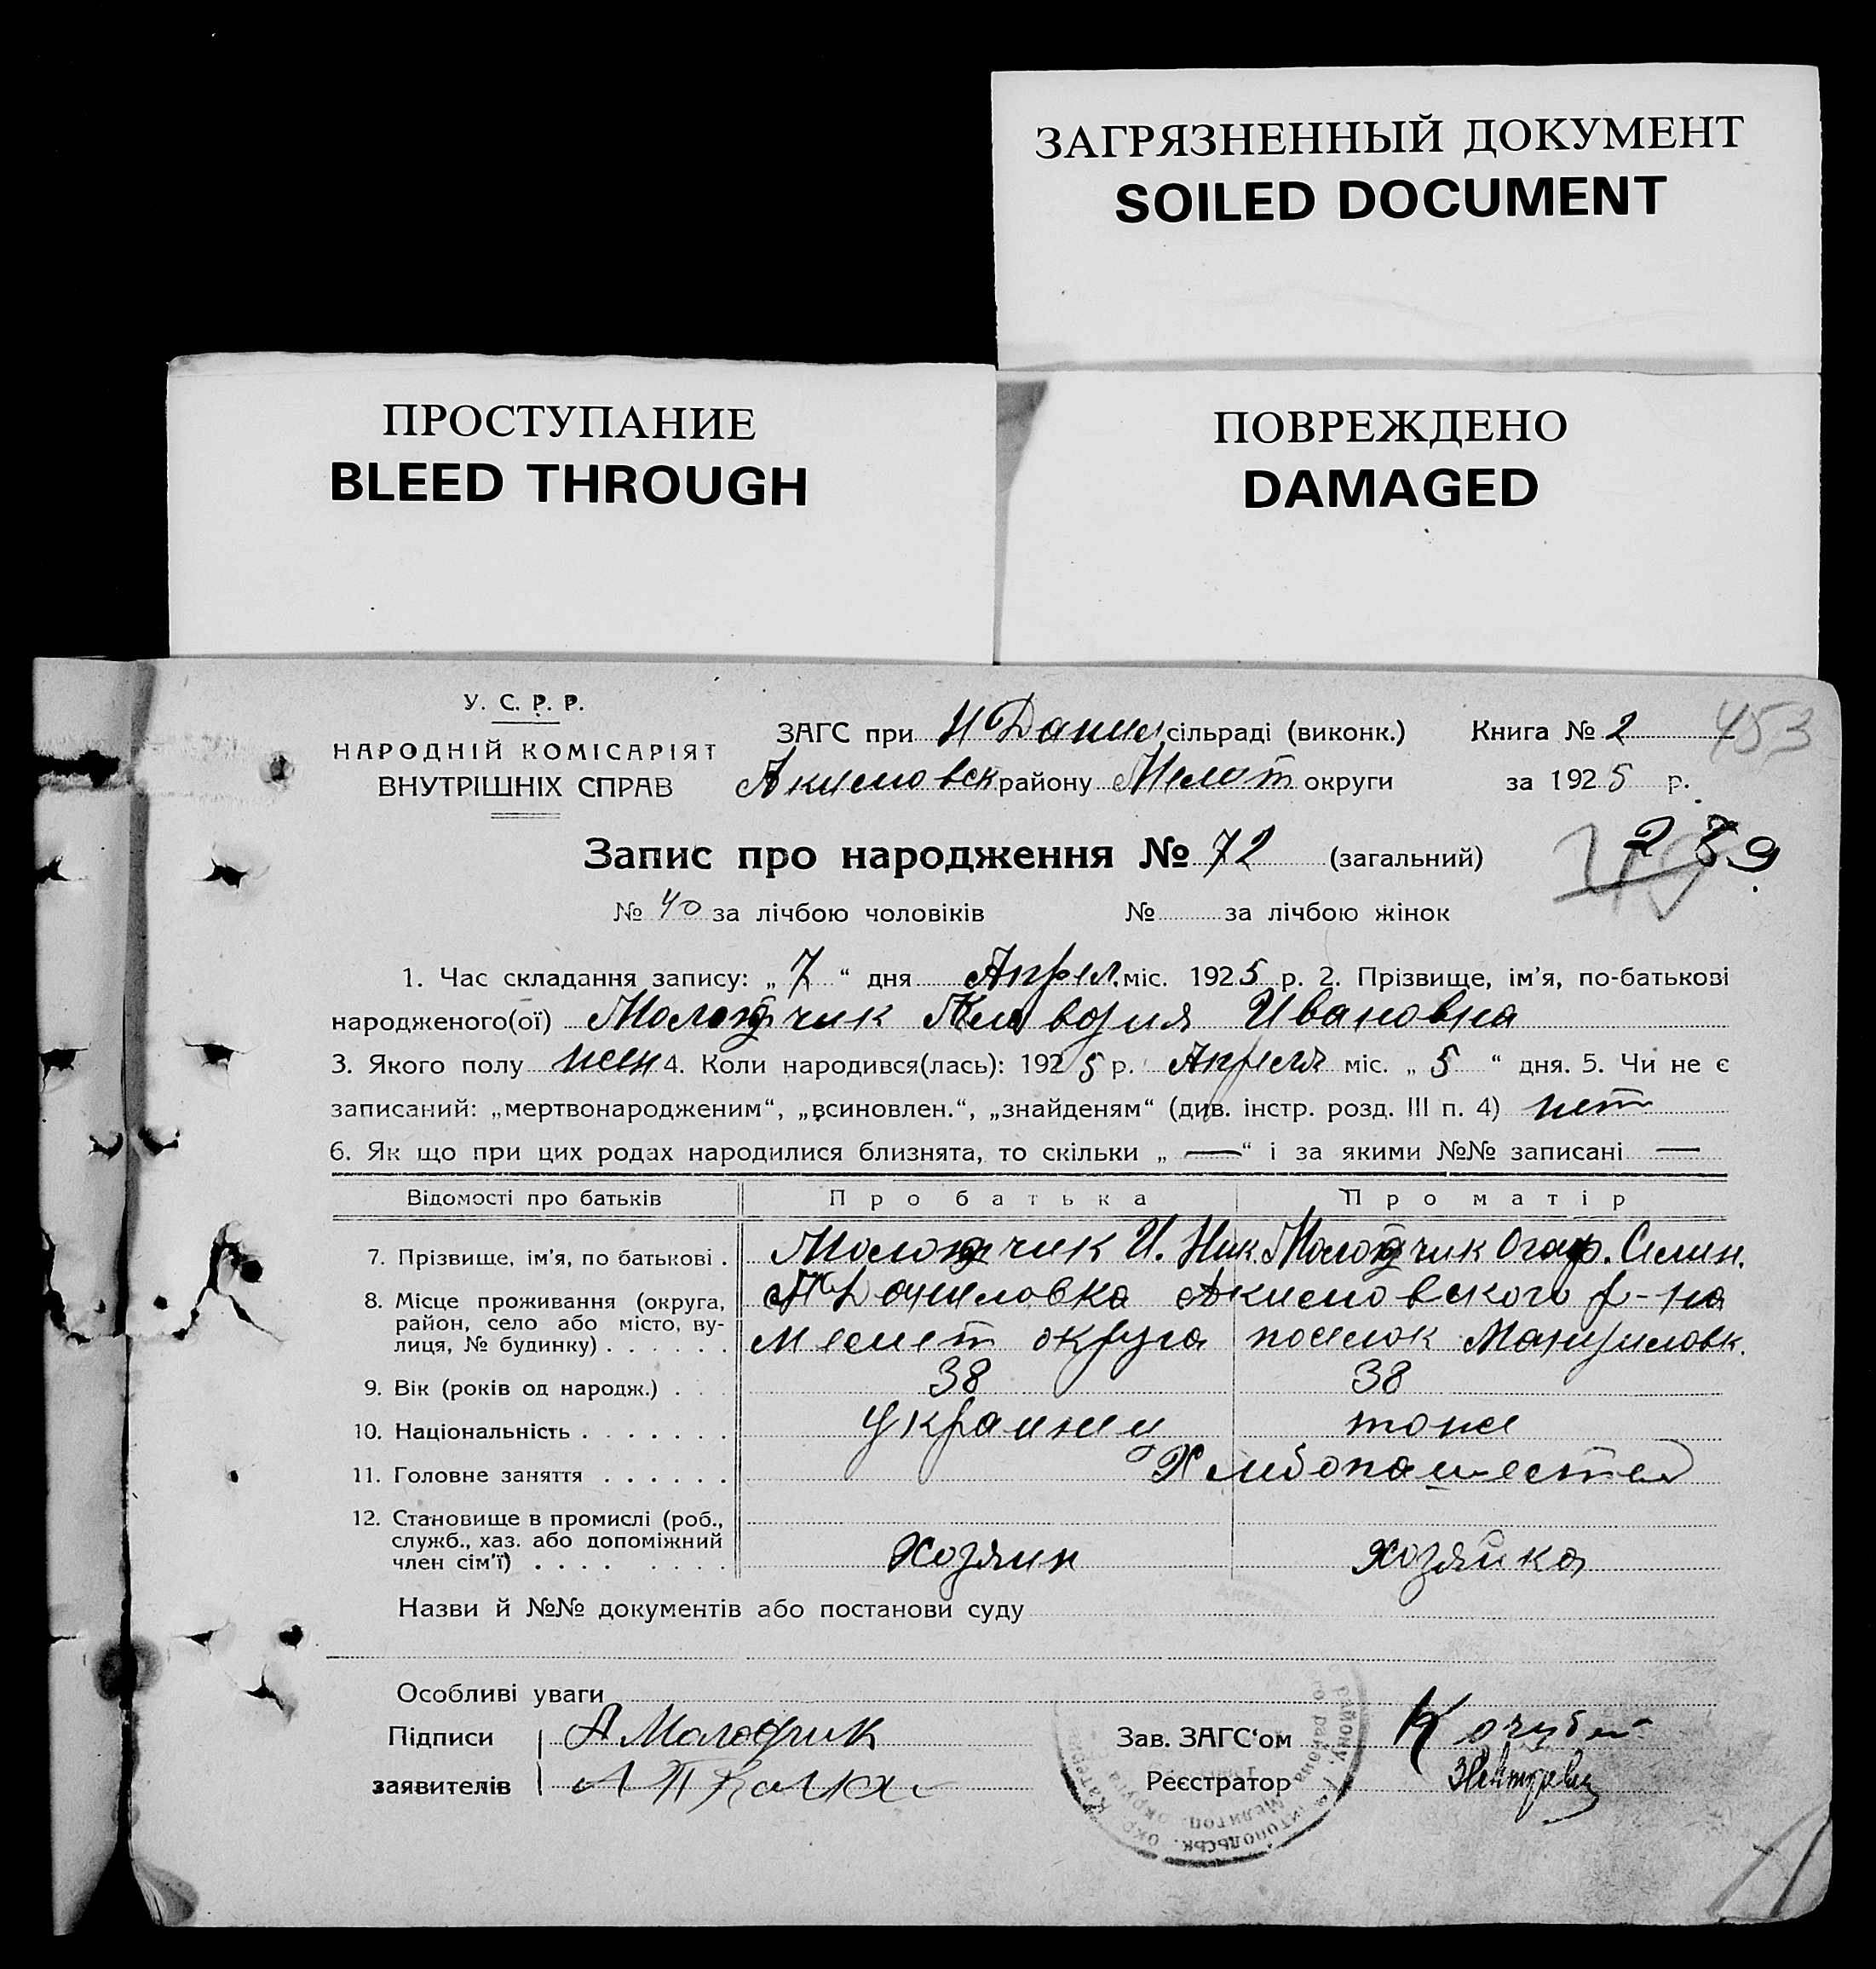 ЗАГРЯЗНЕННЫЙ ДОКУМЕНТ
SOILED DOCUMENT
ПРОСТУПАНИЕ
BLEED THROUGH
ПОВРЕЖДЕНО
DAMAGED
У. С. Р. Р.
НАРОДНІЙ КОМІСАРІЯТ
ВНУТРІШНІХ СПРАВ
ЗАГС при Н Данил сільраді (виконк.) Книга № 2 453
Акимовск району Мелит округи за 1925 р.
Запис про народження № 72 (загальний) 289
№ 40 за лічбою чоловіків № за лічбою жінок
1. Час складання запису: „ 7 “ дня Апрел. міс. 1925 р. 2. Прізвище, ім’я, по-батькові
народженого(ої) Молодчик Клавдия Ивановна
3. Якого полу жен 4. Коли народився(лась): 1925 р. Апреля міс. „ 5 “ дня. 5. Чи не є
записаний: „мертвонародженим“, „всиновлен.“, „знайденям“ (див. інстр. розд. III п. 4) нет
6. Як що при цих родах народилися близнята, то скільки „ — “ і за якими №№ записані —
Відомості про батьків Про батька Про матір
7. Прізвище, ім’я, по батькові . Молодчик И. Ник. Молодчик Агаф. Семен.
8. Місце проживання (округа, район, село або місто, вулиця, № будинку) . . . . . . Даниловка Акимовского р-на
Мелит округа поселок
9. Вік (років од народж.) . . . 38 38
10. Національність . . . . . . . украинец тоже
11. Головне заняття . . . . . . Хлебопашество
12. Становище в промислі (роб.,
служб., хаз. або допоміжний
член сім’ї) . . . . . . . . Хозяин хозяйка
Назви й №№ документів або постанови суду
Особливі уваги
Підписи Молодчик Зав. ЗАГС‘ом Кочубей
заявителів Реєстратор